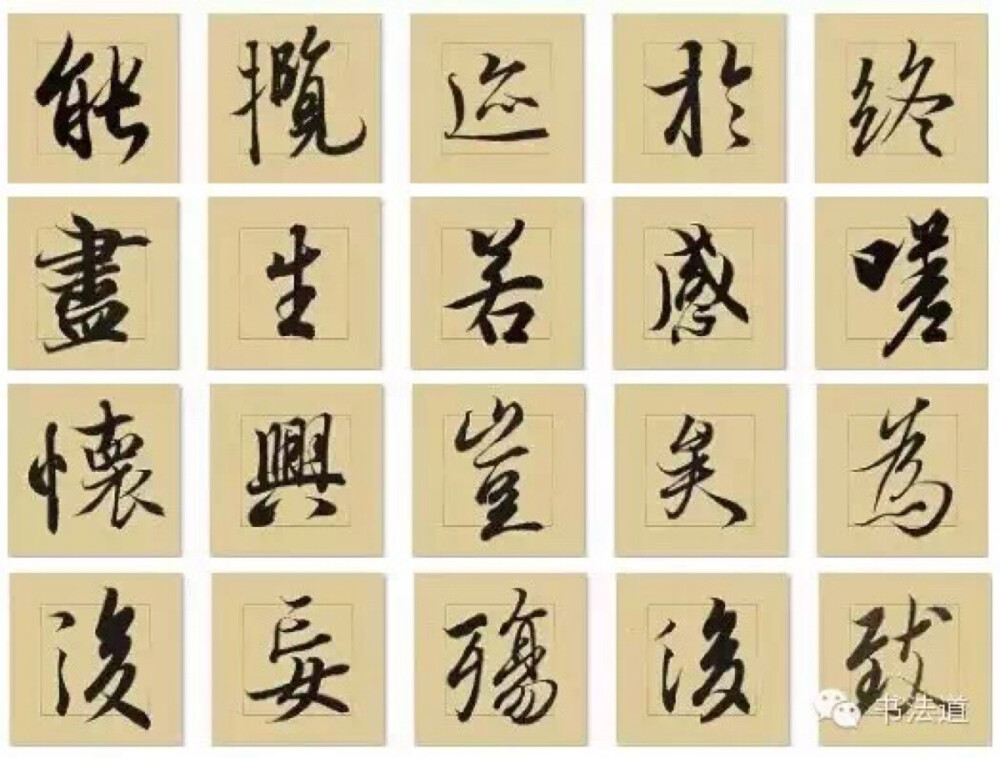 能攬迹於終
盡生若感嗟
懷興豈矣為
後妄殤後致
书法道